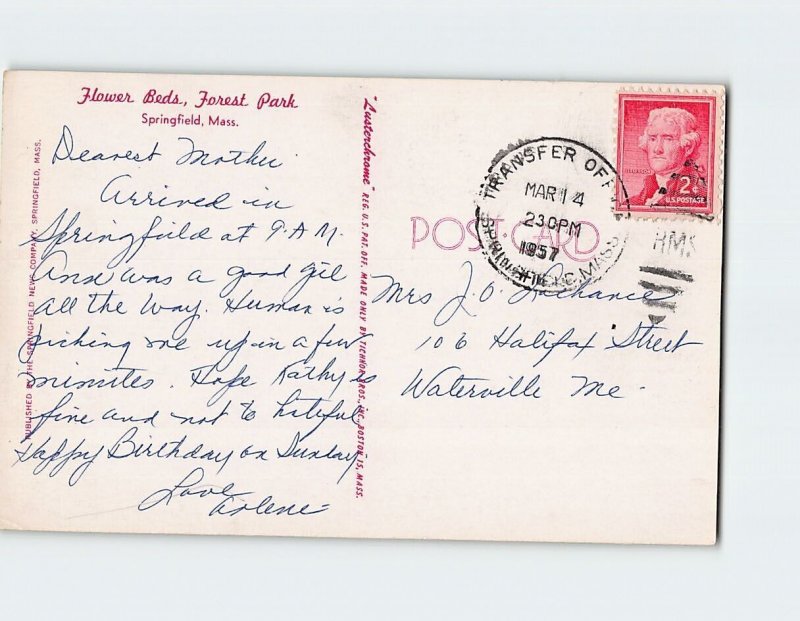 Flower Beds, Forest Park
Springfield, Mass.
Dearest Mother
Arrived in
Springfield at 9 A.M.
Ann was a good girl
all the way. Human is
picking me up in a few
minutes. Hope Kathy is
fine and not to hateful
Happy Birthday on Sunday
Love
Arlene
PUBLISHED BY THE SPRINGFIELD NEWS COMPANY, SPRINGFIELD, MASS.
"Lusterchrome" REG. U.S. PAT. OFF. MADE ONLY BY TICHNOR BROS., INC., BOSTON 15, MASS.
POST CARD
TRANSFER OFF
MAR 14
230PM
1957
MASS
RMS
2¢
U.S. POSTAGE
Mrs J. O. Lachance
106 Halifax Street
Waterville Me.